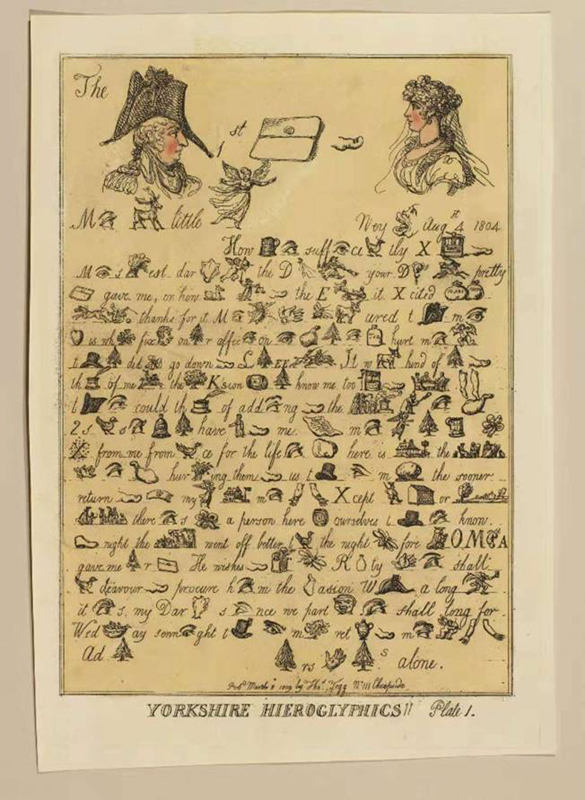 The
1 st
M little
Wey Aug 4 1804
How suff ce tly X
M s est dar the D your D pretty
gave me, or how the E it X cited
thanks for it M ured t m
is wh fix on r affec on hurt m
t did go down L EE It w hand of
th of me the K s con know me too
t could th of add ng the
2 s s have me m
from me from ce for the life here is the
hur ing them us t m the sooner
return my m X cept or
there s a person here ourselves t know.
night the went off better t the night fore OM A
gave me r He wishes R by shall
deavour procure h m the assion W a long
it s, my Dar s nce we part shall long for
Wed ay senn ght t m ret m
Ad
rs s alone.
YORKSHIRE HIEROGLYPHICS!! Plate 1.